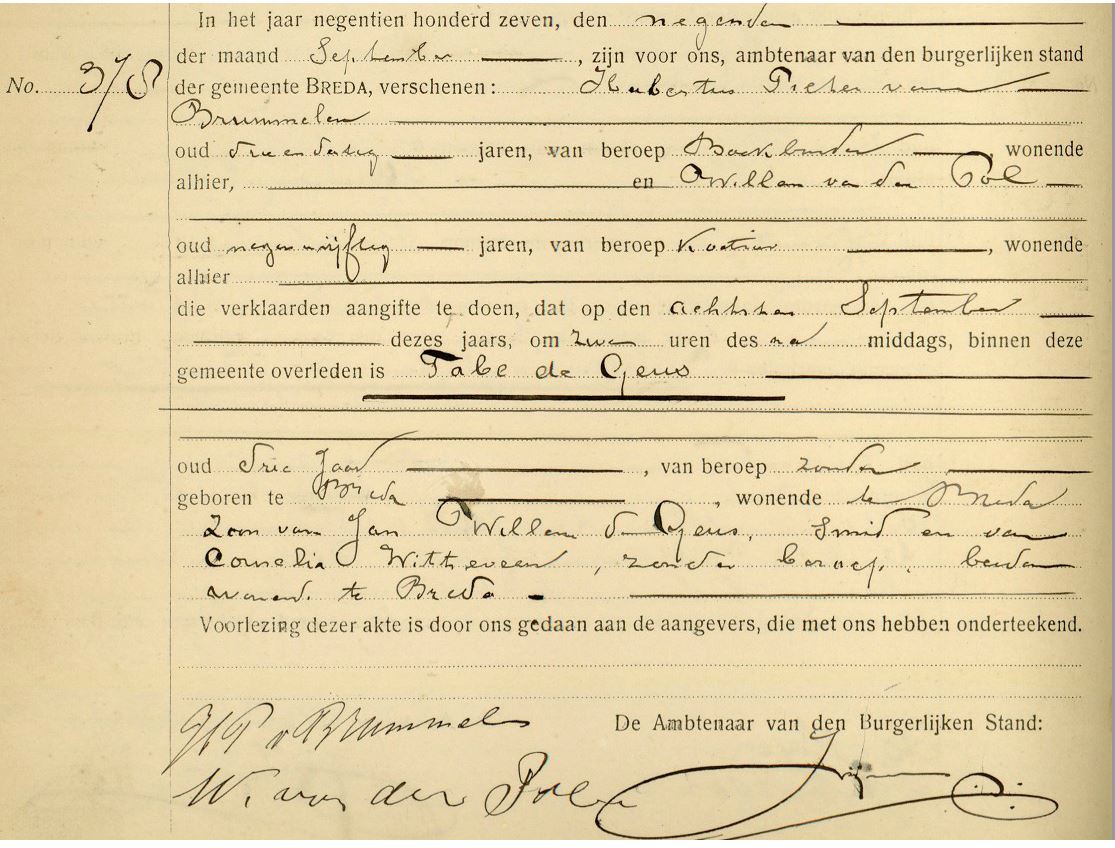 In het jaar negentien honderd zeven, den negenden
der maand September, zijn voor ons, ambtenaar van den burgerlijken stand
No. 378 der gemeente BREDA, verschenen: Hubertus Pieter van
Brummelen
oud drie en dertig jaren, van beroep Boekbinder, wonende
alhier, en Willem van der Pol
oud negen en vijftig jaren, van beroep Koetsier, wonende
alhier
die verklaarden aangifte te doen, dat op den achtsten September
dezes jaars, om twee uren des na middags, binnen deze
gemeente overleden is Tabe de Geus
oud drie Jaar, van beroep zonder
geboren te Breda, wonende te Breda
Zoon van Jan Willem de Geus, Smid en van
Cornelia Witteveen, zonder beroep, beiden
wonend. te Breda
Voorlezing dezer akte is door ons gedaan aan de aangevers, die met ons hebben onderteekend.
HP v Brummelen
De Ambtenaar van den Burgerlijken Stand:
W. van der Pol